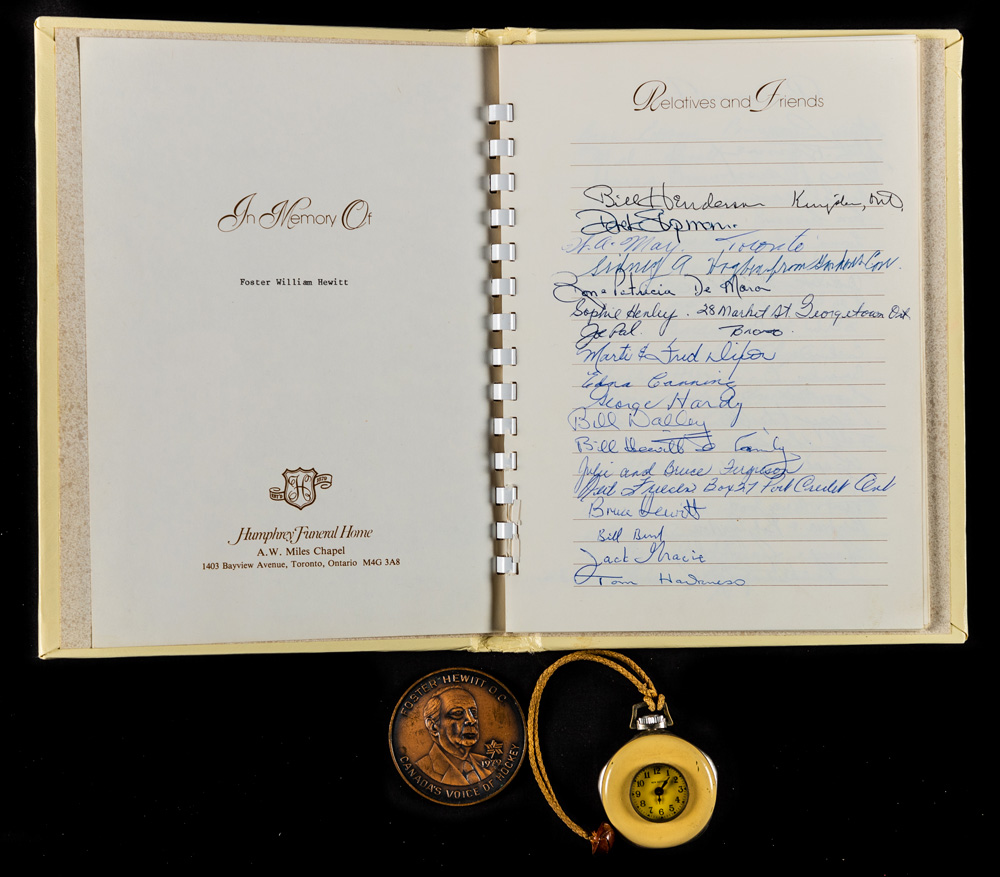 In Memory Of
Foster William Hewitt
H
ESTD
Humphrey Funeral Home
A.W. Miles Chapel
1403 Bayview Avenue, Toronto, Ontario M4G 3A8
Relatives and Friends
Bill Henderson
W.A. May. Toronto
Sidney A from
Patricia De Mara
Sophie Henley. 28 Market St. Georgetown Ont
Joe Pal.
Marti & Fred Dixon
Edna Canning
George Hardy
Bill Dalley
Bill Hewitt & Family
Julie and Bruce Ferguson
Box 27 Port Credit Ont
Bruce Hewitt
Bill
Jack Gracie
Tom Harkness
FOSTER HEWITT O.C.
1979
CANADA'S VOICE OF HOCKEY
12
1
2
3
4
5
6
7
8
9
10
11